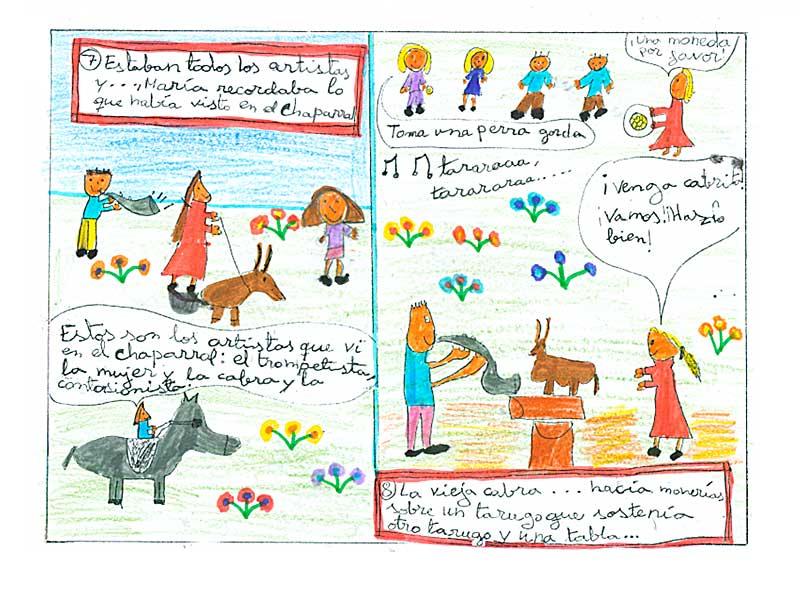 7 Estaban todos los artistas
y..., María recordaba lo
que había visto en el chaparral
Estos son los artistas que vi
en el chaparral: el trompetista,
la mujer y la cabra y la
contorsionista.
¡Una moneda
por favor!
Toma una perra gorda
tararaaa,
tarararaa.....
¡venga cabrito!
¡Vamos! ¡Hazlo
bien!
8 La vieja cabra... hacía monerías
sobre un tarugo que sostenía
otro tarugo y una tabla...